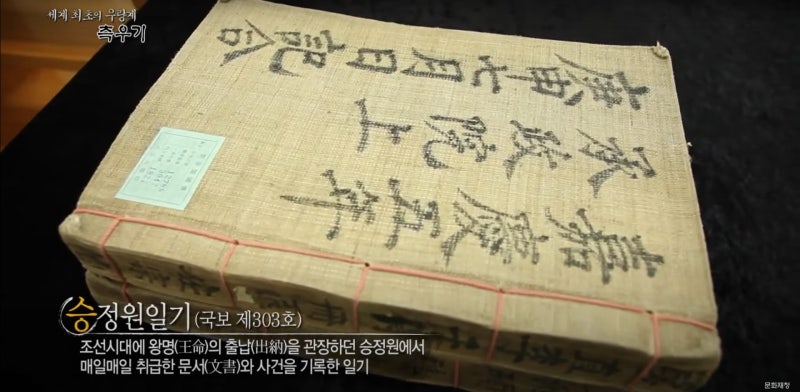 세계 최초의 우량계
측우기
嘉慶五年
承政院上
庚申七月日記合
승정원일기(국보 제303호)
조선시대에 왕명(王命)의 출납(出納)을 관장하던 승정원에서
매일매일 취급한 문서(文書)와 사건을 기록한 일기
문화재청